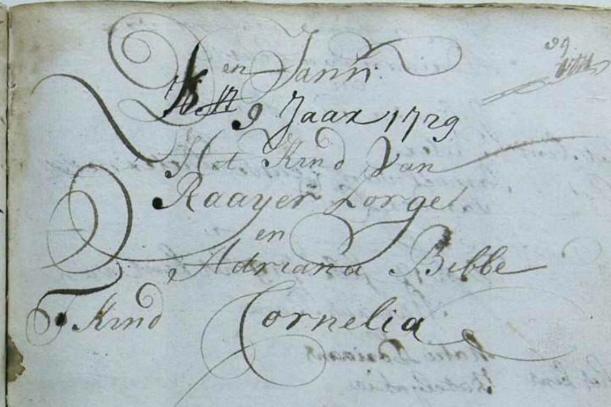 39
Den Jann:
9 Jaar 1729
Het Kind Van
Raayer Zorge
en
Adriana Bibbe
T Kind Cornelia